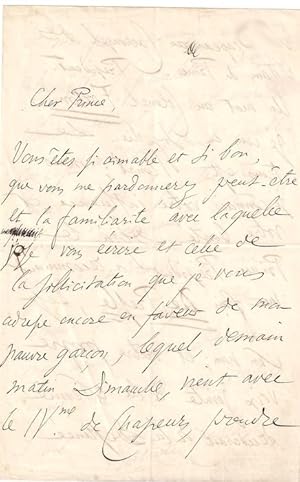 Cher Prince,
Vous êtes si aimable et si bon,
que vous me pardonnerez peut-être
et la familiarité avec laquelle
je vous écris et celle de
la sollicitation que je vous
adresse encore en faveur de mon
pauvre garçon, lequel, demain
matin Dimanche, vient avec
le IVme de Chapeurs, prendre